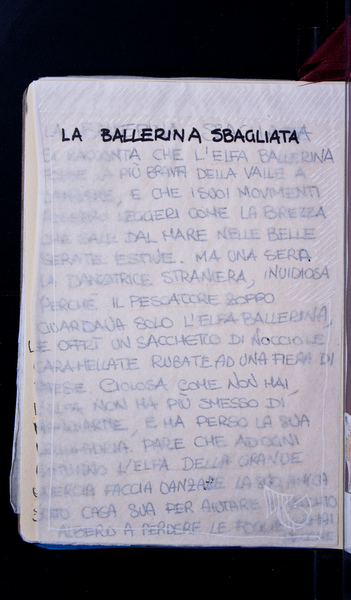 LA BALLERINA SBAGLIATA
SI RACCONTA CHE L'ELFA BALLERINA
FOSSE LA PIÙ BRAVA DELLA VALLE A
DANZARE, E CHE I SUOI MOVIMENTI
LEGGERI COME LA BREZZA
CHE SALE DAL MARE NELLE BELLE
SERATE ESTIVE. MA UNA SERA
LA DANZATRICE STRANIERA, INVIDIOSA
PERCHÉ IL PESCATORE ZOPPO
GUARDAVA SOLO L'ELFA BALLERINA,
LE OFFRÌ UN SACCHETTO DI NOCCIOLE
CARAMELLATE RUBATE AD UNA FIERA DI
PAESE. GOLOSA COME NON MAI
L'ELFA NON HA PIÙ SMESSO DI
MANGIARNE, E HA PERSO LA SUA
PARE CHE AD OGNI
AUTUNNO L'ELFA DELLA GRANDE
QUERCIA FACCIA DANZARE LA SUA
SOTTO CASA SUA PER AIUTARE
ALBERO A PERDERE LE FOGLIE